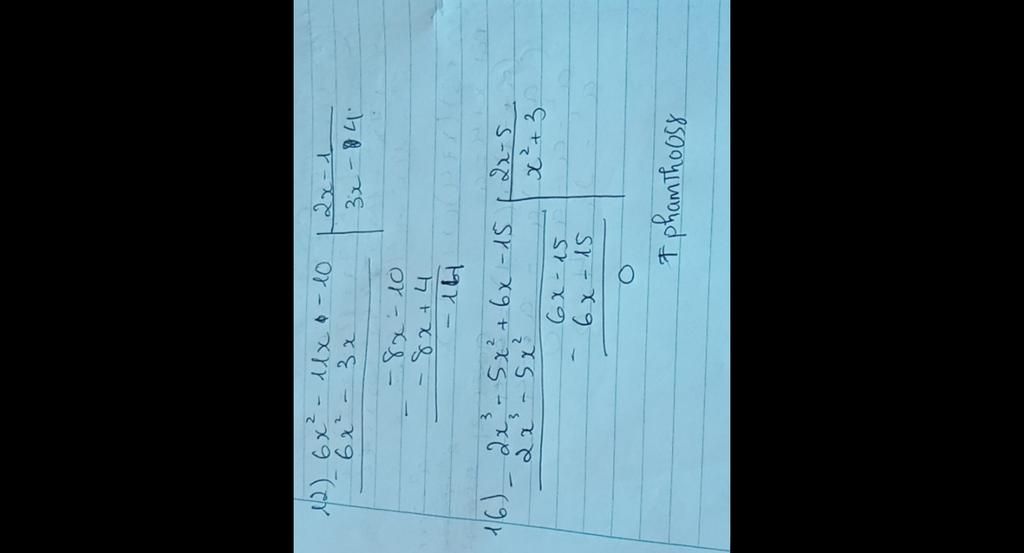 12) - 6x² - 11x - 10 | 2x - 1
6x² - 3x | 3x - 4
- - 8x - 10
- 8x + 4
- 14
16) - 2x³ - 5x² + 6x - 15 | 2x - 5
2x³ - 5x² | x² + 3
- 6x - 15
6x - 15
0
# phamtho058